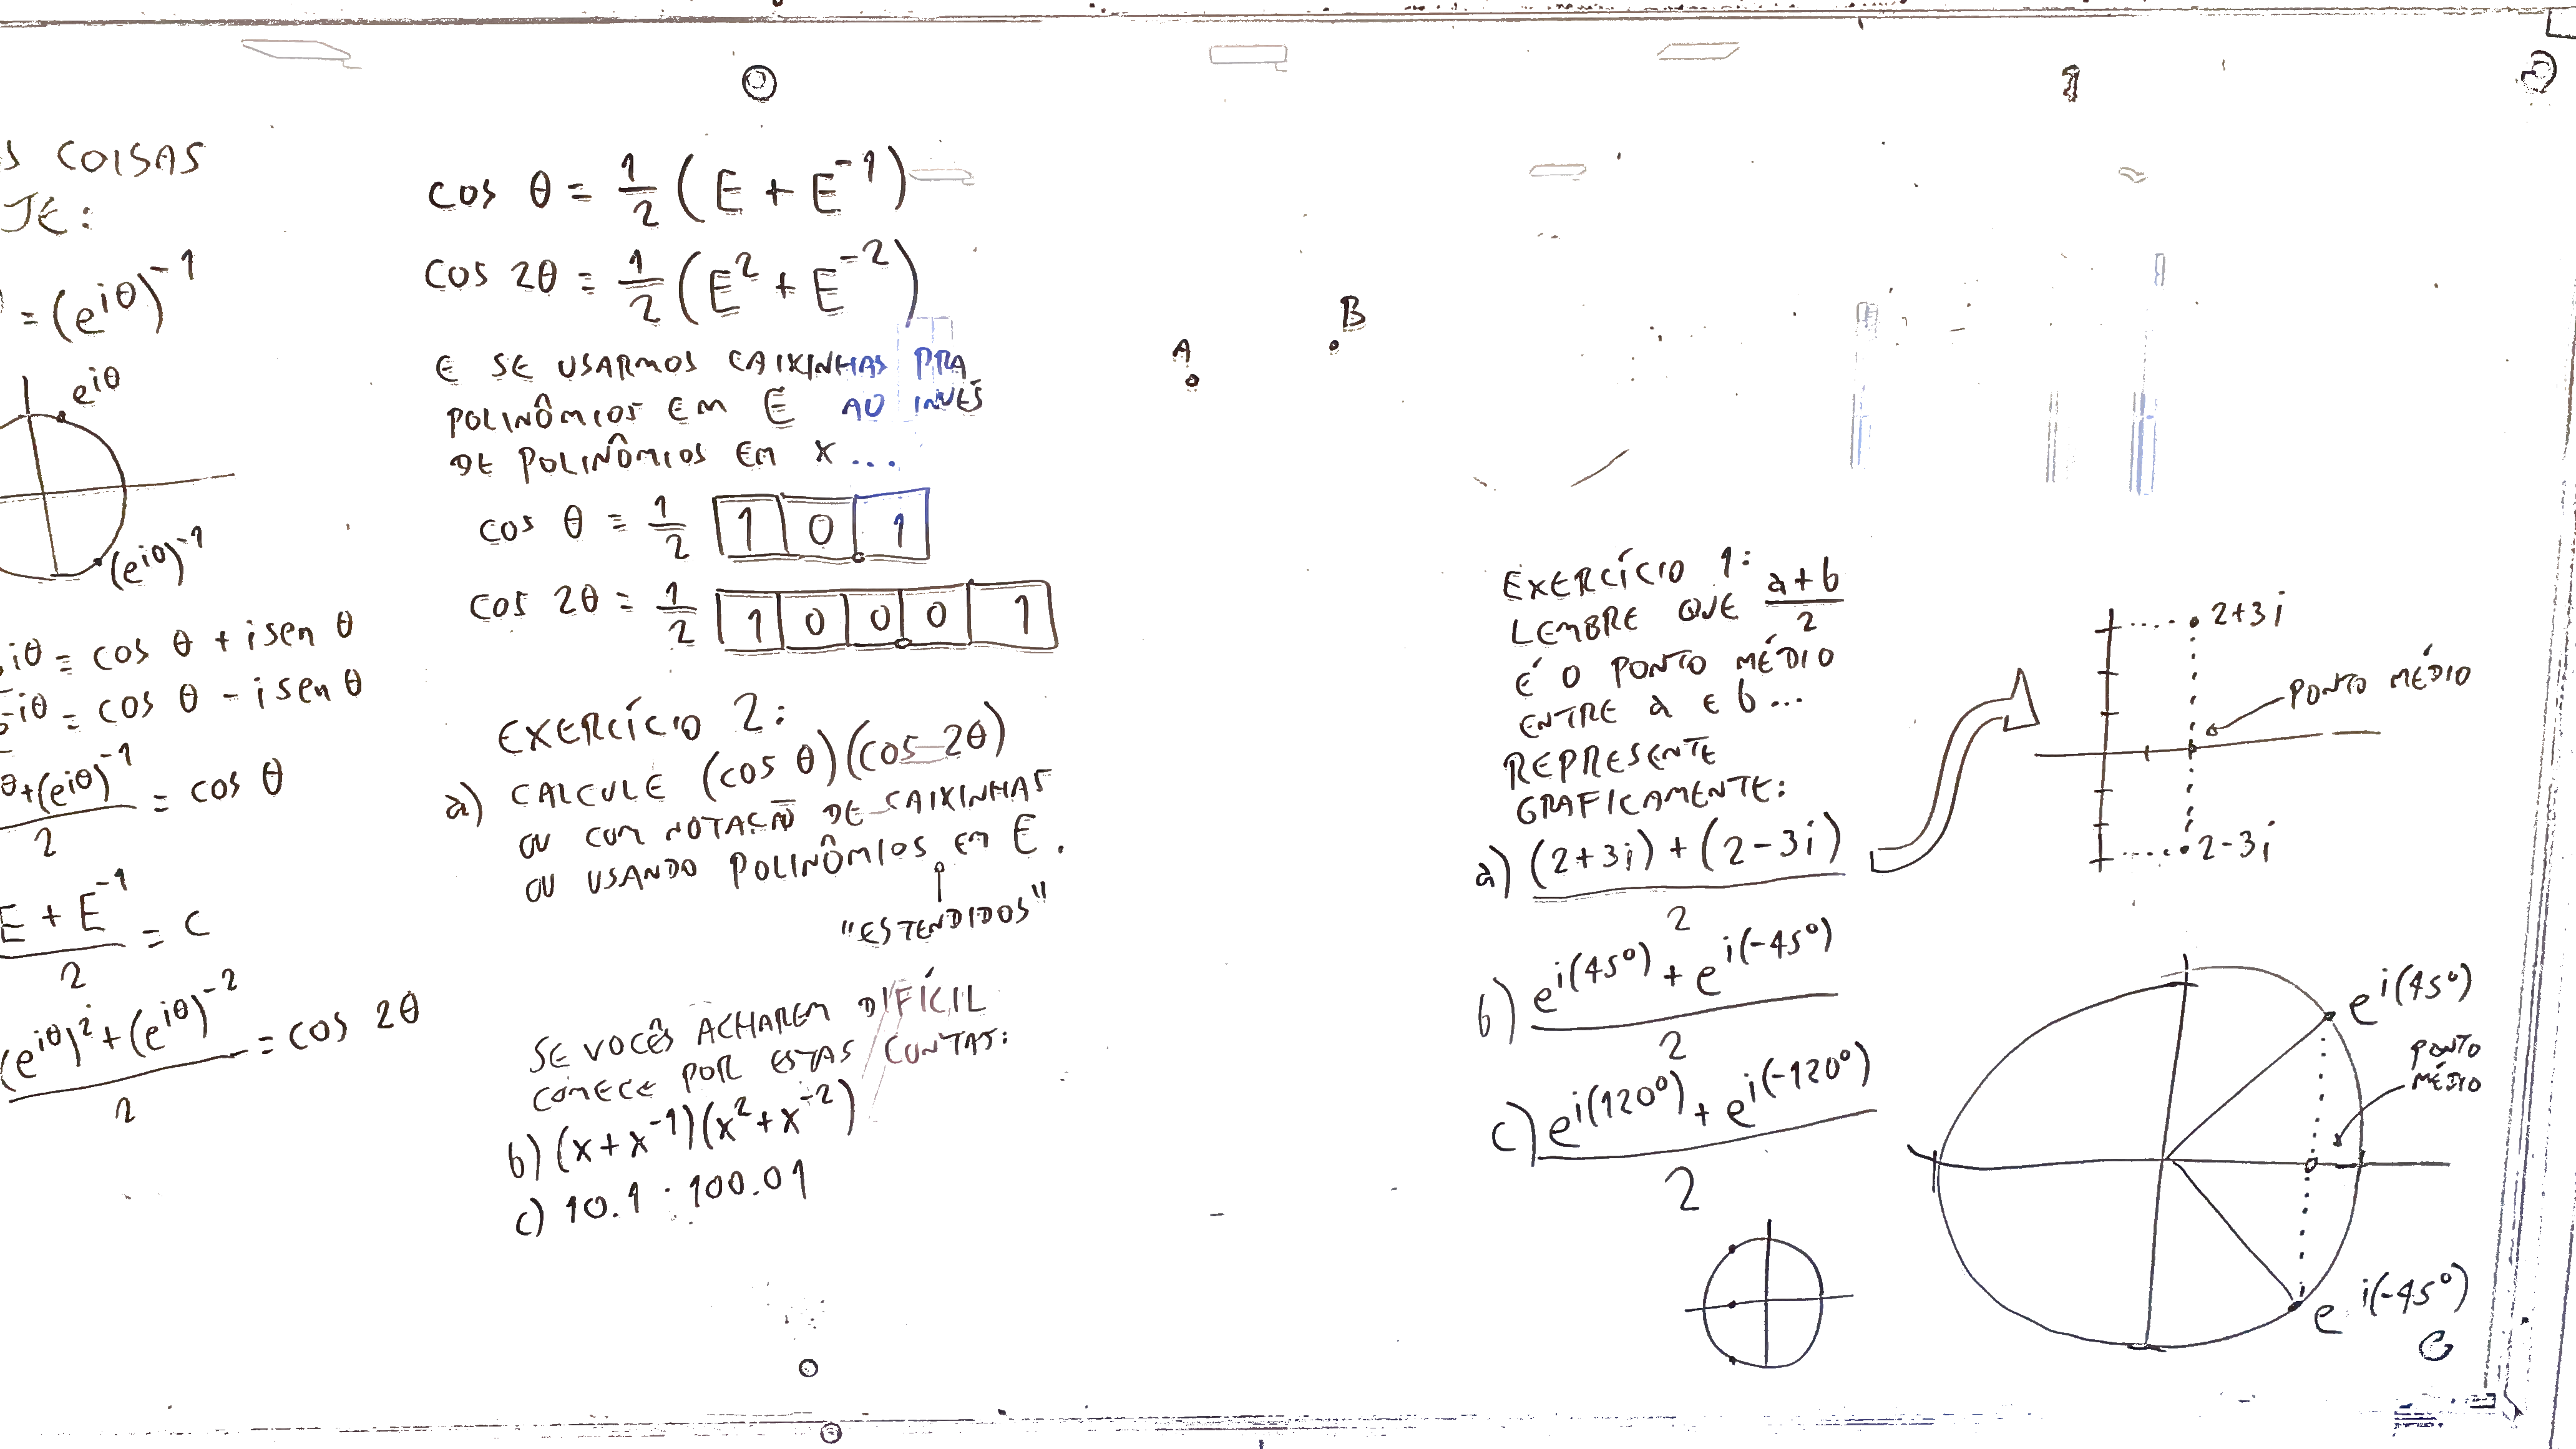 S COISAS
JE:
= (e^{iθ})^{-1}
e^{iθ}
(e^{iθ})^{-1}
iθ = cos θ + i sen θ
-iθ = cos θ - i sen θ
θ+(e^{iθ})^{-1}/2 = cos θ
E + E^{-1}/2 = C
(e^{iθ})^2 + (e^{iθ})^{-2}/2 = cos 2θ
cos θ = 1/2 (E + E^{-1})
cos 2θ = 1/2 (E^2 + E^{-2})
E SE USARMOS CAIXINHAS PRA
POLINÔMIOS EM E AO INVÉS
DE POLINÔMIOS EM X ...
cos θ = 1/2 1 0 . 1
cos 2θ = 1/2 1 0 0 . 0 1
EXERCÍCIO 2:
a) CALCULE (cos θ)(cos 2θ)
OU COM NOTAÇÃO DE CAIXINHAS
OU USANDO POLINÔMIOS EM E.
"ESTENDIDOS"
SE VOCÊS ACHAREM DIFÍCIL
COMECE POR ESTAS CONTAS:
b) (x+x^{-1})(x^2+x^{-2})
c) 10.1 · 100.01
A
B
EXERCÍCIO 1:
LEMBRE QUE a+b/2
É O PONTO MÉDIO
ENTRE a E b...
REPRESENTE
GRAFICAMENTE:
a) (2+3i) + (2-3i)/2
b) e^{i(45°)} + e^{i(-45°)}/2
c) e^{i(120°)} + e^{i(-120°)}/2
2+3i
PONTO MÉDIO
2-3i
e^{i(45°)}
PONTO
MÉDIO
e^{i(-45°)}